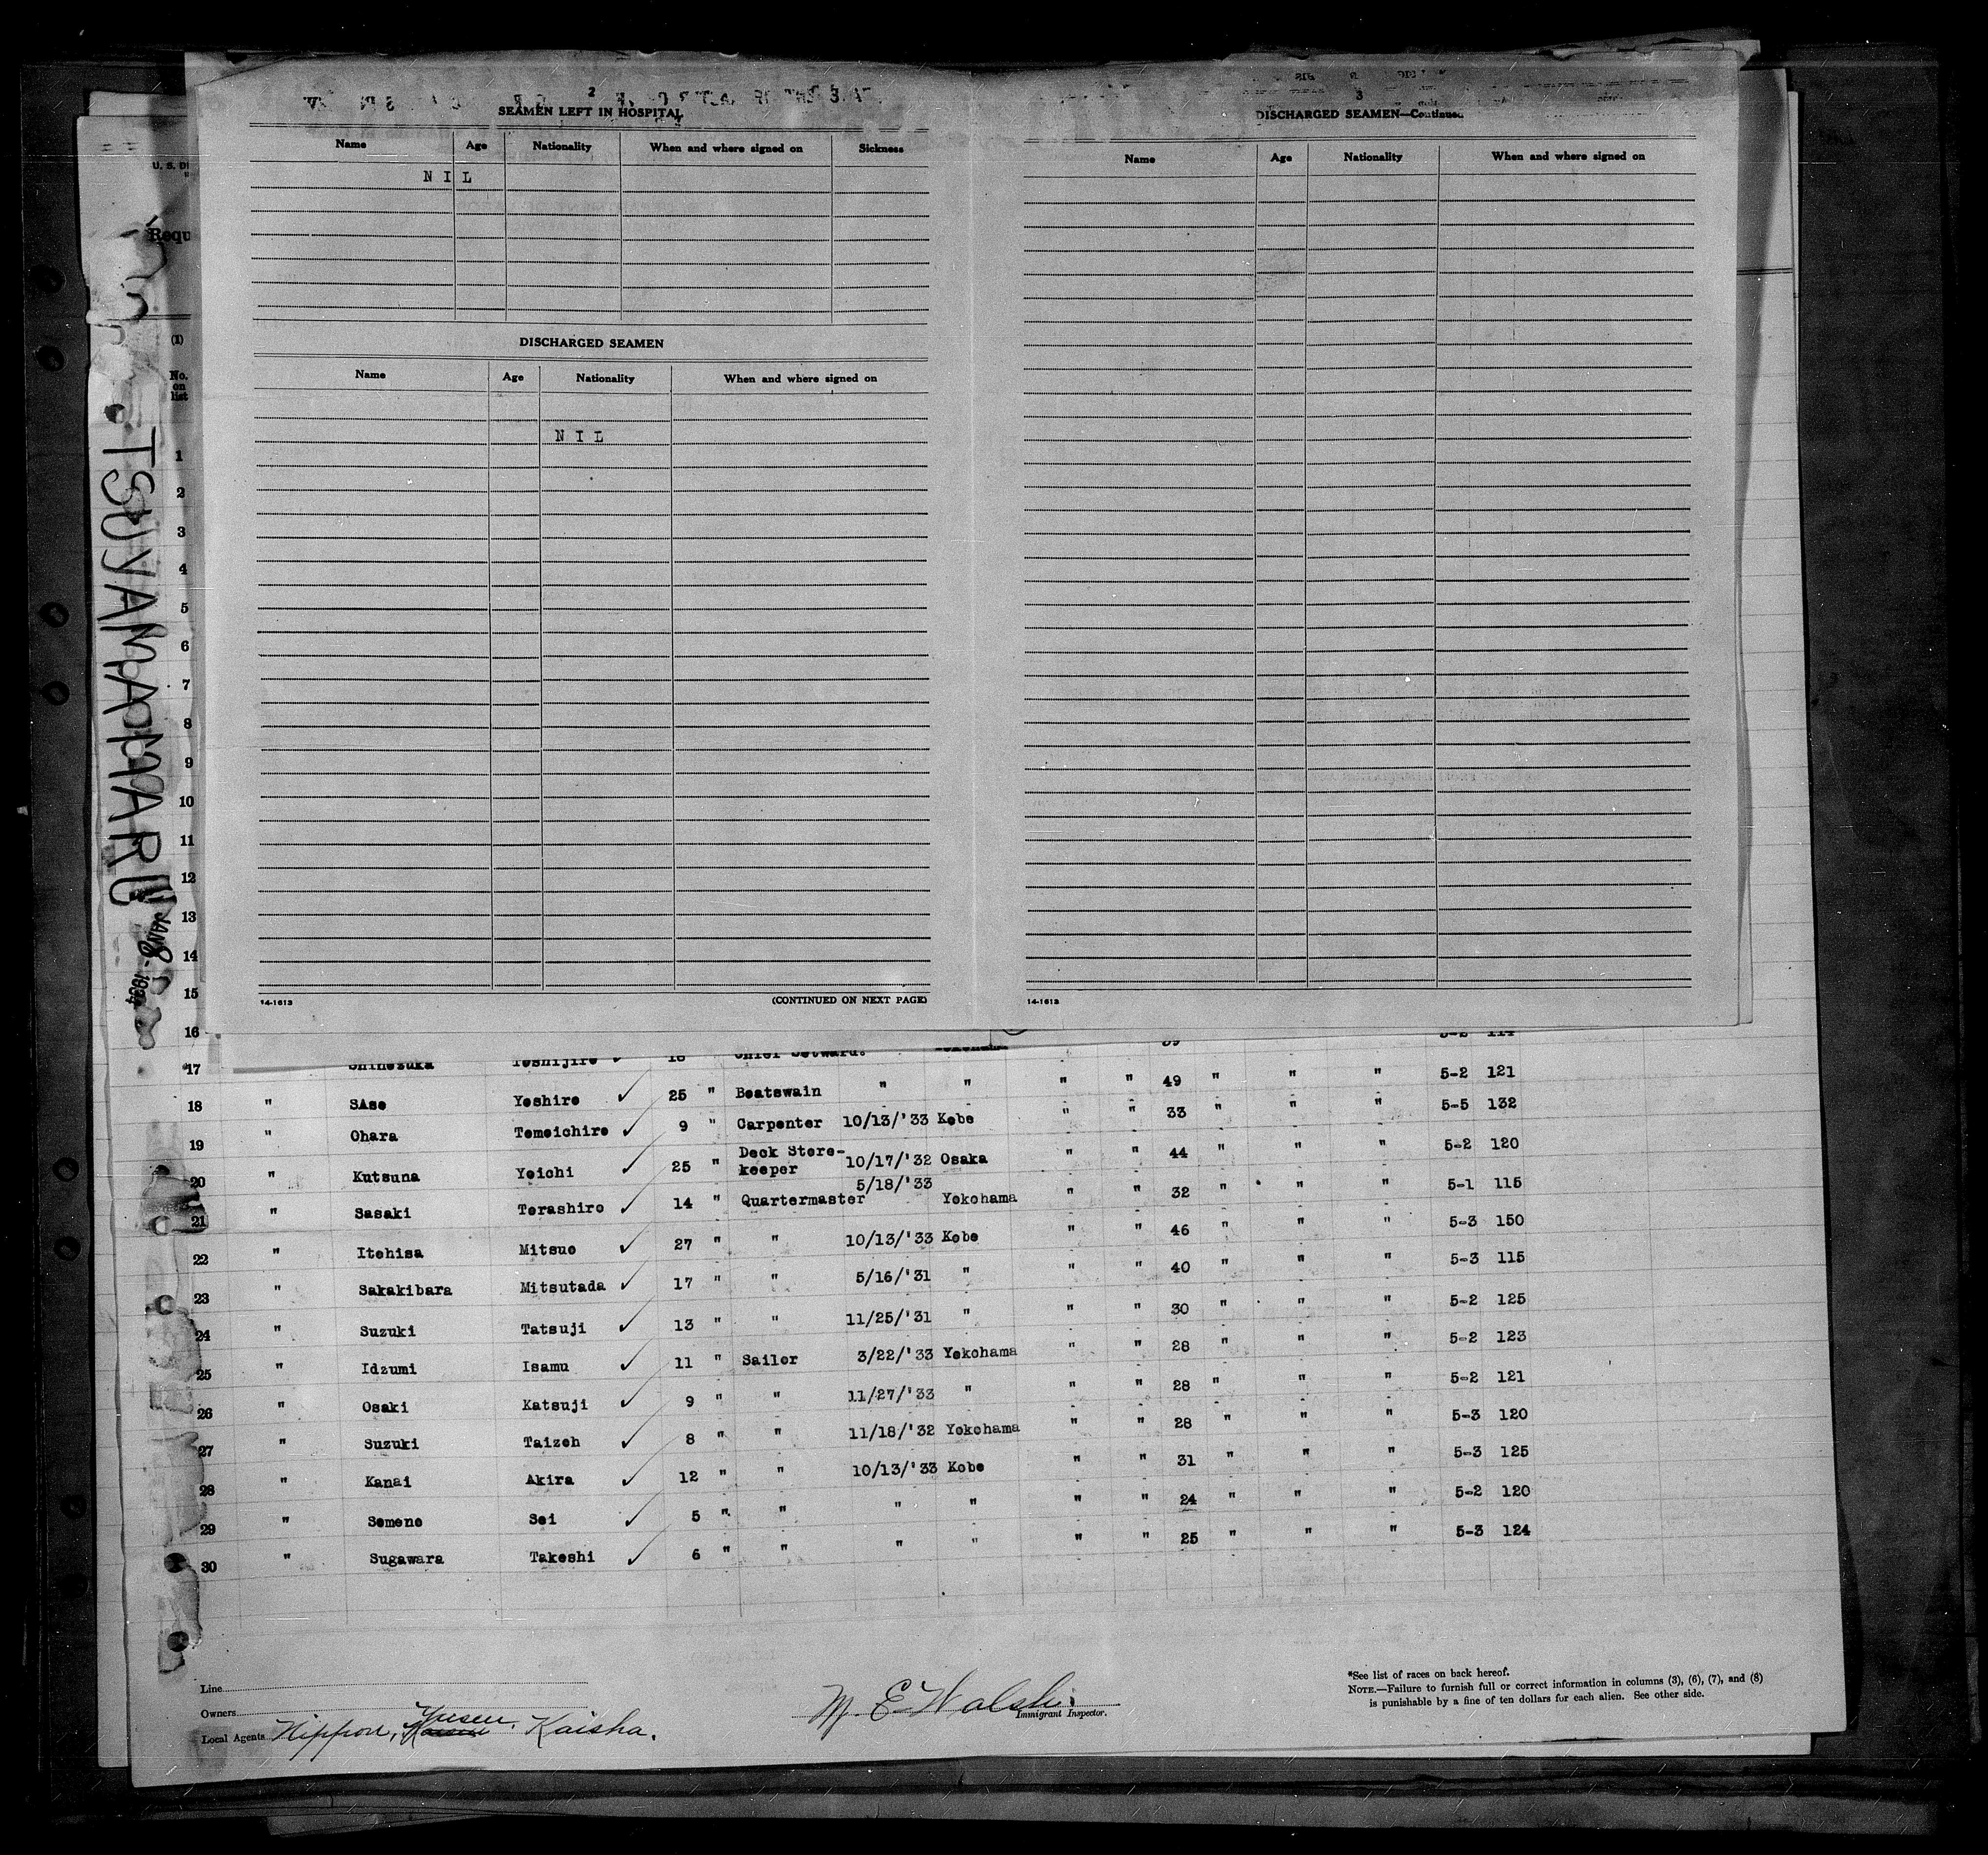 2
SEAMEN LEFT IN HOSPITAL
Name Age Nationality When and where signed on Sickness
N I L
DISCHARGED SEAMEN
Name Age Nationality When and where signed on
N I L
14-1613 (CONTINUED ON NEXT PAGE)
3
DISCHARGED SEAMEN—Continued
Name Age Nationality When and where signed on
14-1613
U. S. D
Requ
(1)
No.
on
list
1
2
3
4
5
6
7
8
9
10
11
12
13
14
15
16
TSUYAMA MARU
JAN 8 - 1934
5-2 114
17 Shinozuka Yoshijiro ✓ 18 Chief Setward. Yokohama 39
18 " SAso Yoshiro ✓ 25 " Boatswain " " " " 49 " " " 5-2 121
19 " Ohara Tomoichiro ✓ 9 " Carpenter 10/13/'33 Kobe " " 33 " " " 5-5 132
20 " Kutsuna Yoichi ✓ 25 " Deck Store-keeper 10/17/'32 Osaka " " 44 " " " 5-2 120
21 " Sasaki Torashiro ✓ 14 " Quartermaster 5/18/'33 Yokohama " " 32 " " " 5-1 115
22 " Itohisa Mitsuo ✓ 27 " " 10/13/'33 Kobe " " 46 " " " 5-3 150
23 " Sakakibara Mitsutada ✓ 17 " " 5/16/'31 " " " 40 " " " 5-3 115
24 " Suzuki Tatsuji ✓ 13 " " 11/25/'31 " " " 30 " " " 5-2 125
25 " Idzumi Isamu ✓ 11 " Sailor 3/22/'33 Yokohama " " 28 " " " 5-2 123
26 " Osaki Katsuji ✓ 9 " " 11/27/'33 " " " 28 " " " 5-2 121
27 " Suzuki Taizoh ✓ 8 " " 11/18/'32 Yokohama " " 28 " " " 5-3 120
28 " Kanai Akira ✓ 12 " " 10/13/'33 Kobe " " 31 " " " 5-3 125
29 " Someno Sei ✓ 5 " " " " " " 24 " " " 5-2 120
30 " Sugawara Takeshi ✓ 6 " " " " " " 25 " " " 5-3 124
Line
Owners
Local Agents Nippon, Yusen. Kaisha.
M. E. Walsh.
Immigrant Inspector.
*See list of races on back hereof.
NOTE.—Failure to furnish full or correct information in columns (3), (6), (7), and (8)
is punishable by a fine of ten dollars for each alien. See other side.